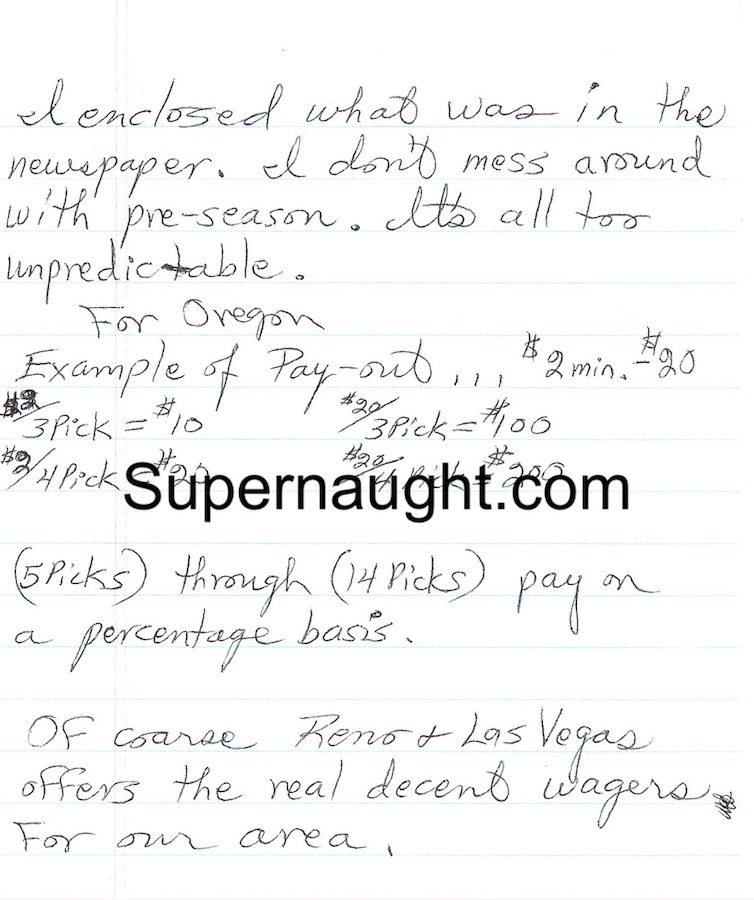 I enclosed what was in the
newspaper. I don't mess around
with pre-season. It's all too
unpredictable.
For Oregon
Example of Pay-out ... $2 min. - $20
$2/3 Pick = $10 $20/3 Pick = $100
$2/4 Pick = $20 $20/4 Pick = $200
Supernaught.com
(5 Picks) through (14 Picks) pay on
a percentage basis.
Of coarse Reno & Las Vegas
offers the real decent wagers
For our area.